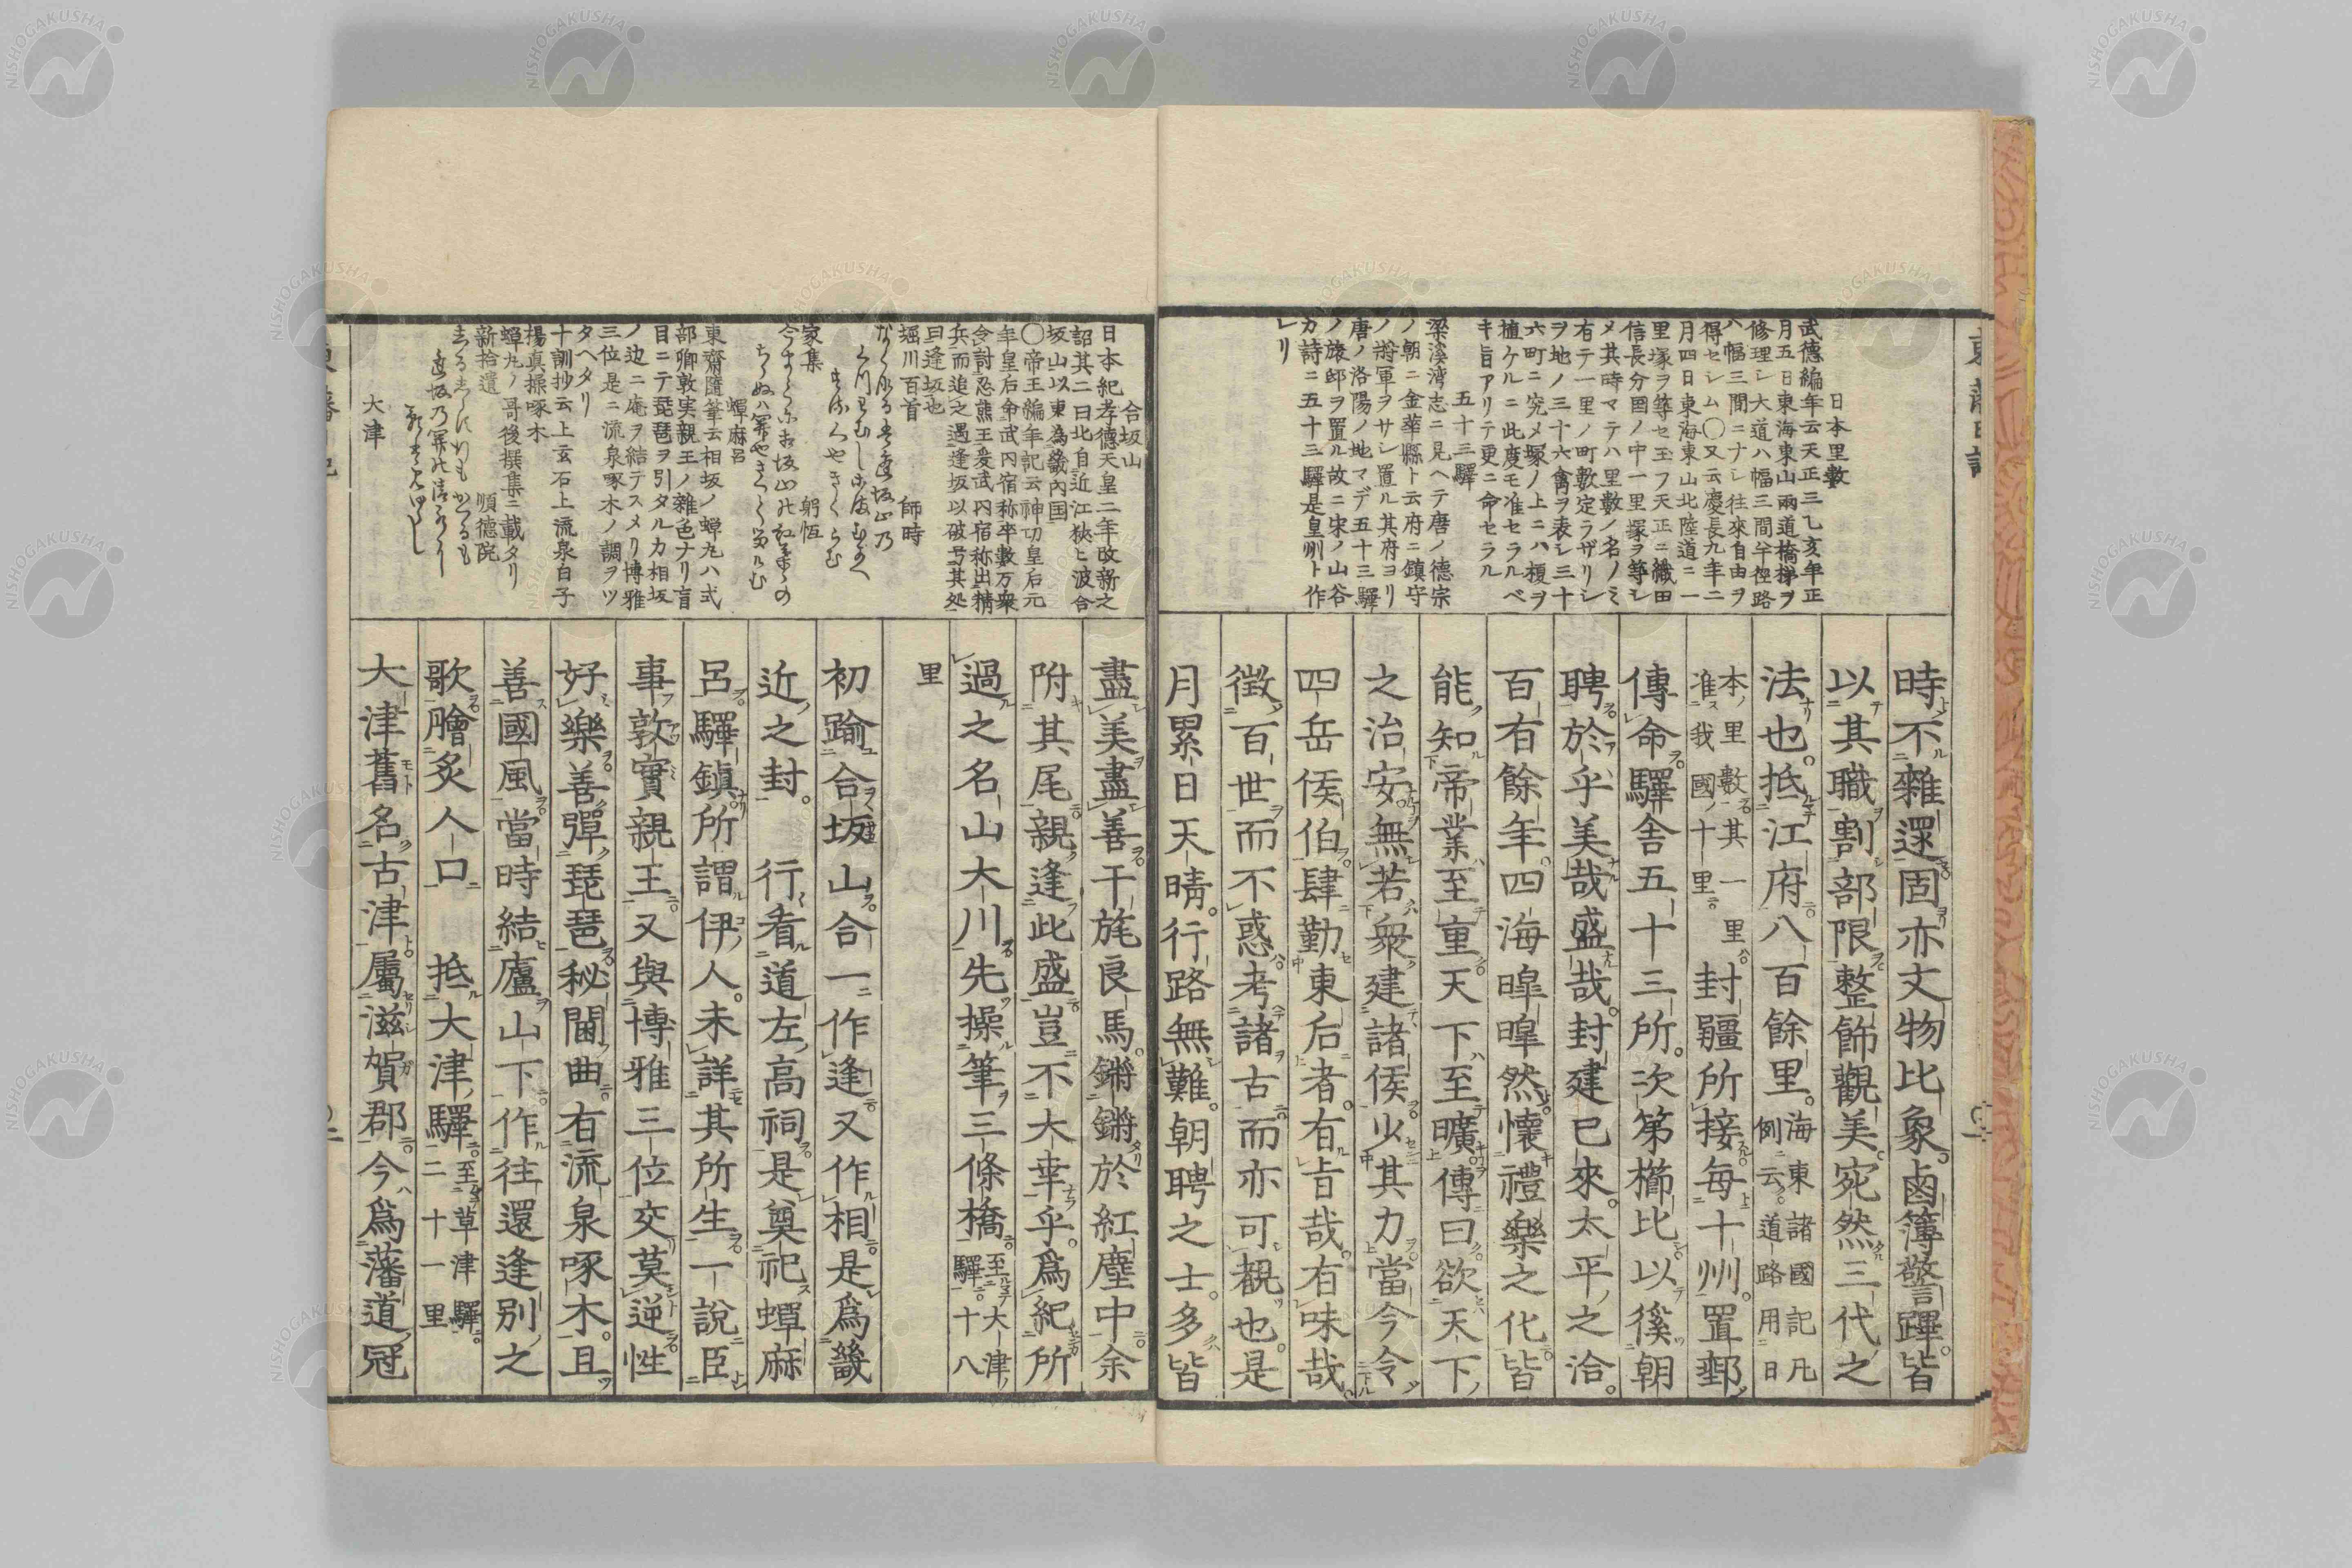 日本里數
武德編年云天正三乙亥年正
月五日東海東山兩道橋梯ヲ
修理シ大道ハ幅三間半徑路
ハ幅三間ニナシ往來自由ヲ
得セシム〇又云慶長九年二
月四日東海東山北陸道ニ一
里塚ヲ等セ玉フ天正ニ織田
信長分國ノ中一里塚ヲ等シ
メ其時マテハ里數ノ名ノミ
有テ一里ノ町數定ラザリシ
ヲ地ノ三十六禽ヲ表シ三十
六町ニ究メ塚ノ上ニハ榎ヲ
植ケルニ此度モ准セラルベ
キ旨アリテ更ニ命セラル
五十三驛
梁溪湾志ニ見ヘテ唐ノ德宗
ノ朝ニ金華縣ト云府ニ鎮守
ノ將軍ヲサシ置ル其府ヨリ
唐ノ洛陽ノ地マデ五十三驛
ノ旅邸ヲ置ル故ニ宋ノ山谷
カ詩ニ五十三驛是皇州ト作
レリ
時不雜還固亦文物比象鹵簿警蹕皆
以其職割部限整飾觀美宛然三代之
法也抵江府八百餘里海東諸國記凡例云道路用日
本里數其一里准我國十里封疆所接每十州置郵
傳命驛舍五十三所次第櫛比以徯朝
聘於乎美哉盛哉封建已來太平之洽
百有餘年四海皥皥然懷禮樂之化皆
能知帝業至重天下至曠傳曰欲天下
之治安無若衆建諸侯以其力當今令
四岳侯伯肆勤東后者有旨哉有味哉
徵百世而不惑考諸古而亦可観也是
月累日天晴行路無難朝聘之士多皆
合坂山
日本紀孝德天皇二年改新之
詔其二曰北自近江狹ヒ波合
坂山以東為畿内国
〇帝王編年記云神功皇后元
年皇后命武内宿称卒數万衆
令討忍熊王爰武内宿称出精
兵而追之遇逢坂以破号其処
曰逢坂也
堀川百首　師時
家集　躬恒
蟬麻呂
東齋隨筆云相坂ノ蟬丸ハ式
部卿敦実親王ノ雜色ナリ盲
目ニテ琵琶ヲ引タルカ相坂
ノ边ニ庵ヲ結テスメリ博雅
三位是ニ流泉啄木ノ調ヲツ
タヘタリ
十訓抄云上玄石上流泉白子
揚真操啄木
蟬丸ノ哥後撰集ニ載タリ
新拾遺　順德院
大津
盡美盡善干旄良馬鏘鏘於紅塵中余
附其尾親逢此盛豈不大幸乎為紀所
過之名山大川先操筆三條橋至大津驛十八
里
初踰合坂山合一作逢又作相是為畿
近之封　行看道左高祠是奠祀蟬麻
呂驛鎮所謂伊人未詳其所生一說臣
事敦實親王又與博雅三位交莫逆性
好樂善彈琵琶秘閫曲有流泉啄木且
善國風當時結廬山下作往還逢別之
歌膾炙人口　抵大津驛至草津驛二十一里
大津舊名古津屬滋賀郡今為藩道冠